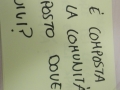 È COMPOSTA
LA COMUNITÀ
POSTO DOVE
VIVI?